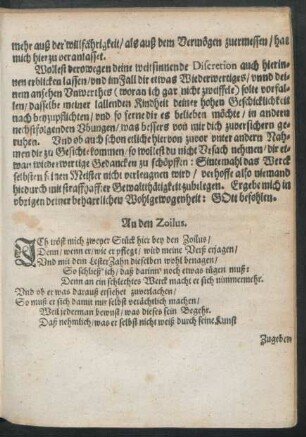 mehr auß der willfährigkeit/ als auß dem Vermögen zuermessen/ hat
mich hier zu veranlasset.
Wollest derowegen deine weitsinnende Discretion auch hierin-
nen erblicken lassen/ und im Fall dir etwas Wiederwertiges/ vnnd dei-
nem ansehen Vnwerthes (woran ich gar nicht zweiffele) solte vorfal-
len/ dasselbe meiner lallenden Kindheit deiner hohen Geschickligkeit
nach beyzupflichten/ und so ferne dir es belieben möchte/ in andern
nechstfolgenden Vbungen/ was bessers von mir dich zuversichern ge-
ruhen. Und ob auch schon etliche hiervon zuvor unter andern Nah-
men dir zu Gesichte kommen/ so wollest du nicht Vrsach nehmen/ dir et-
wan wiederwertige Gedancken zu schöpffen: Sintemahl das Werck
selbsten seinen Meister nicht verleugnen wird/ verhoffe also niemand
hiedurch mit straffhaffter Gewaltthätigkeit zubelegen. Ergebe mich in
übrigen deiner beharrlichen Wohlgewogenheit: GOtt befohlen.
An den Zoilus.
ICh tröst mich zweyer Stück hier bey den Zoilus/
Denn/ wenn er/ wie er pflegt/ wird meine Verß erjagen/
Vnd mit dem Lester Zahn dieselben wohl benagen/
So schließ' ich/ daß darinn' noch etwas tügen muß:
Denn an ein schlechtes Werck macht er sich nimmermehr.
Vnd ob er was darauß ersiehet zuverlachen/
So muß er sich damit nur selbst verächtlich machen/
Weil jederman bewust/ was dieses sein Begehr.
Daß nehmlich/ was er selbst nicht weiß durch seine Kunst
Zugeben